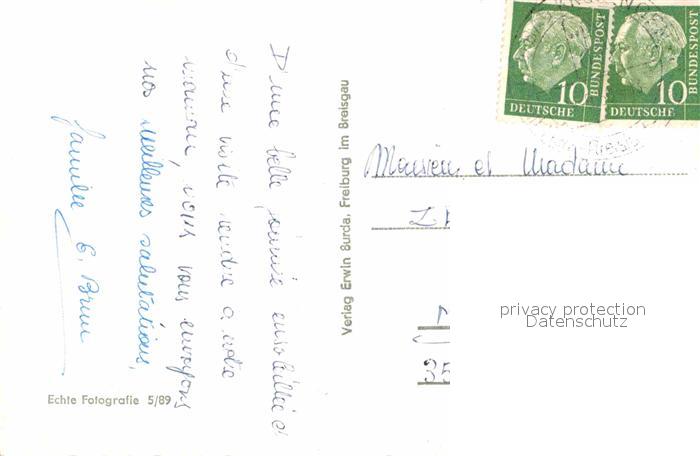 D'une belle journée ensoleillée et
d'une visite rendue à notre
nous vous envoyons
nos meilleures salutations.
Famille E. Brun
Echte Fotografie 5/89
Verlag Erwin Burda, Freiburg im Breisgau
10
DEUTSCHE
BUNDESPOST
10
DEUTSCHE
BUNDESPOST
Monsieur et Madame
privacy protection
Datenschutz